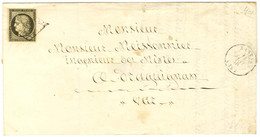 Monsieur
Monsieur Meissonnier
Ingénieur des Mines
à Draguignan
Var